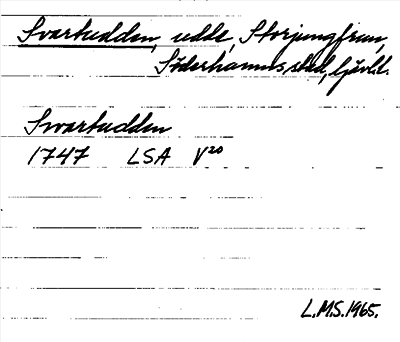 Svartudden, udde, Storjungfrun,
Söderhamns stad, Gävl.l.
Svartudden
1747 LSA V²⁰
L.M.S. 1965.